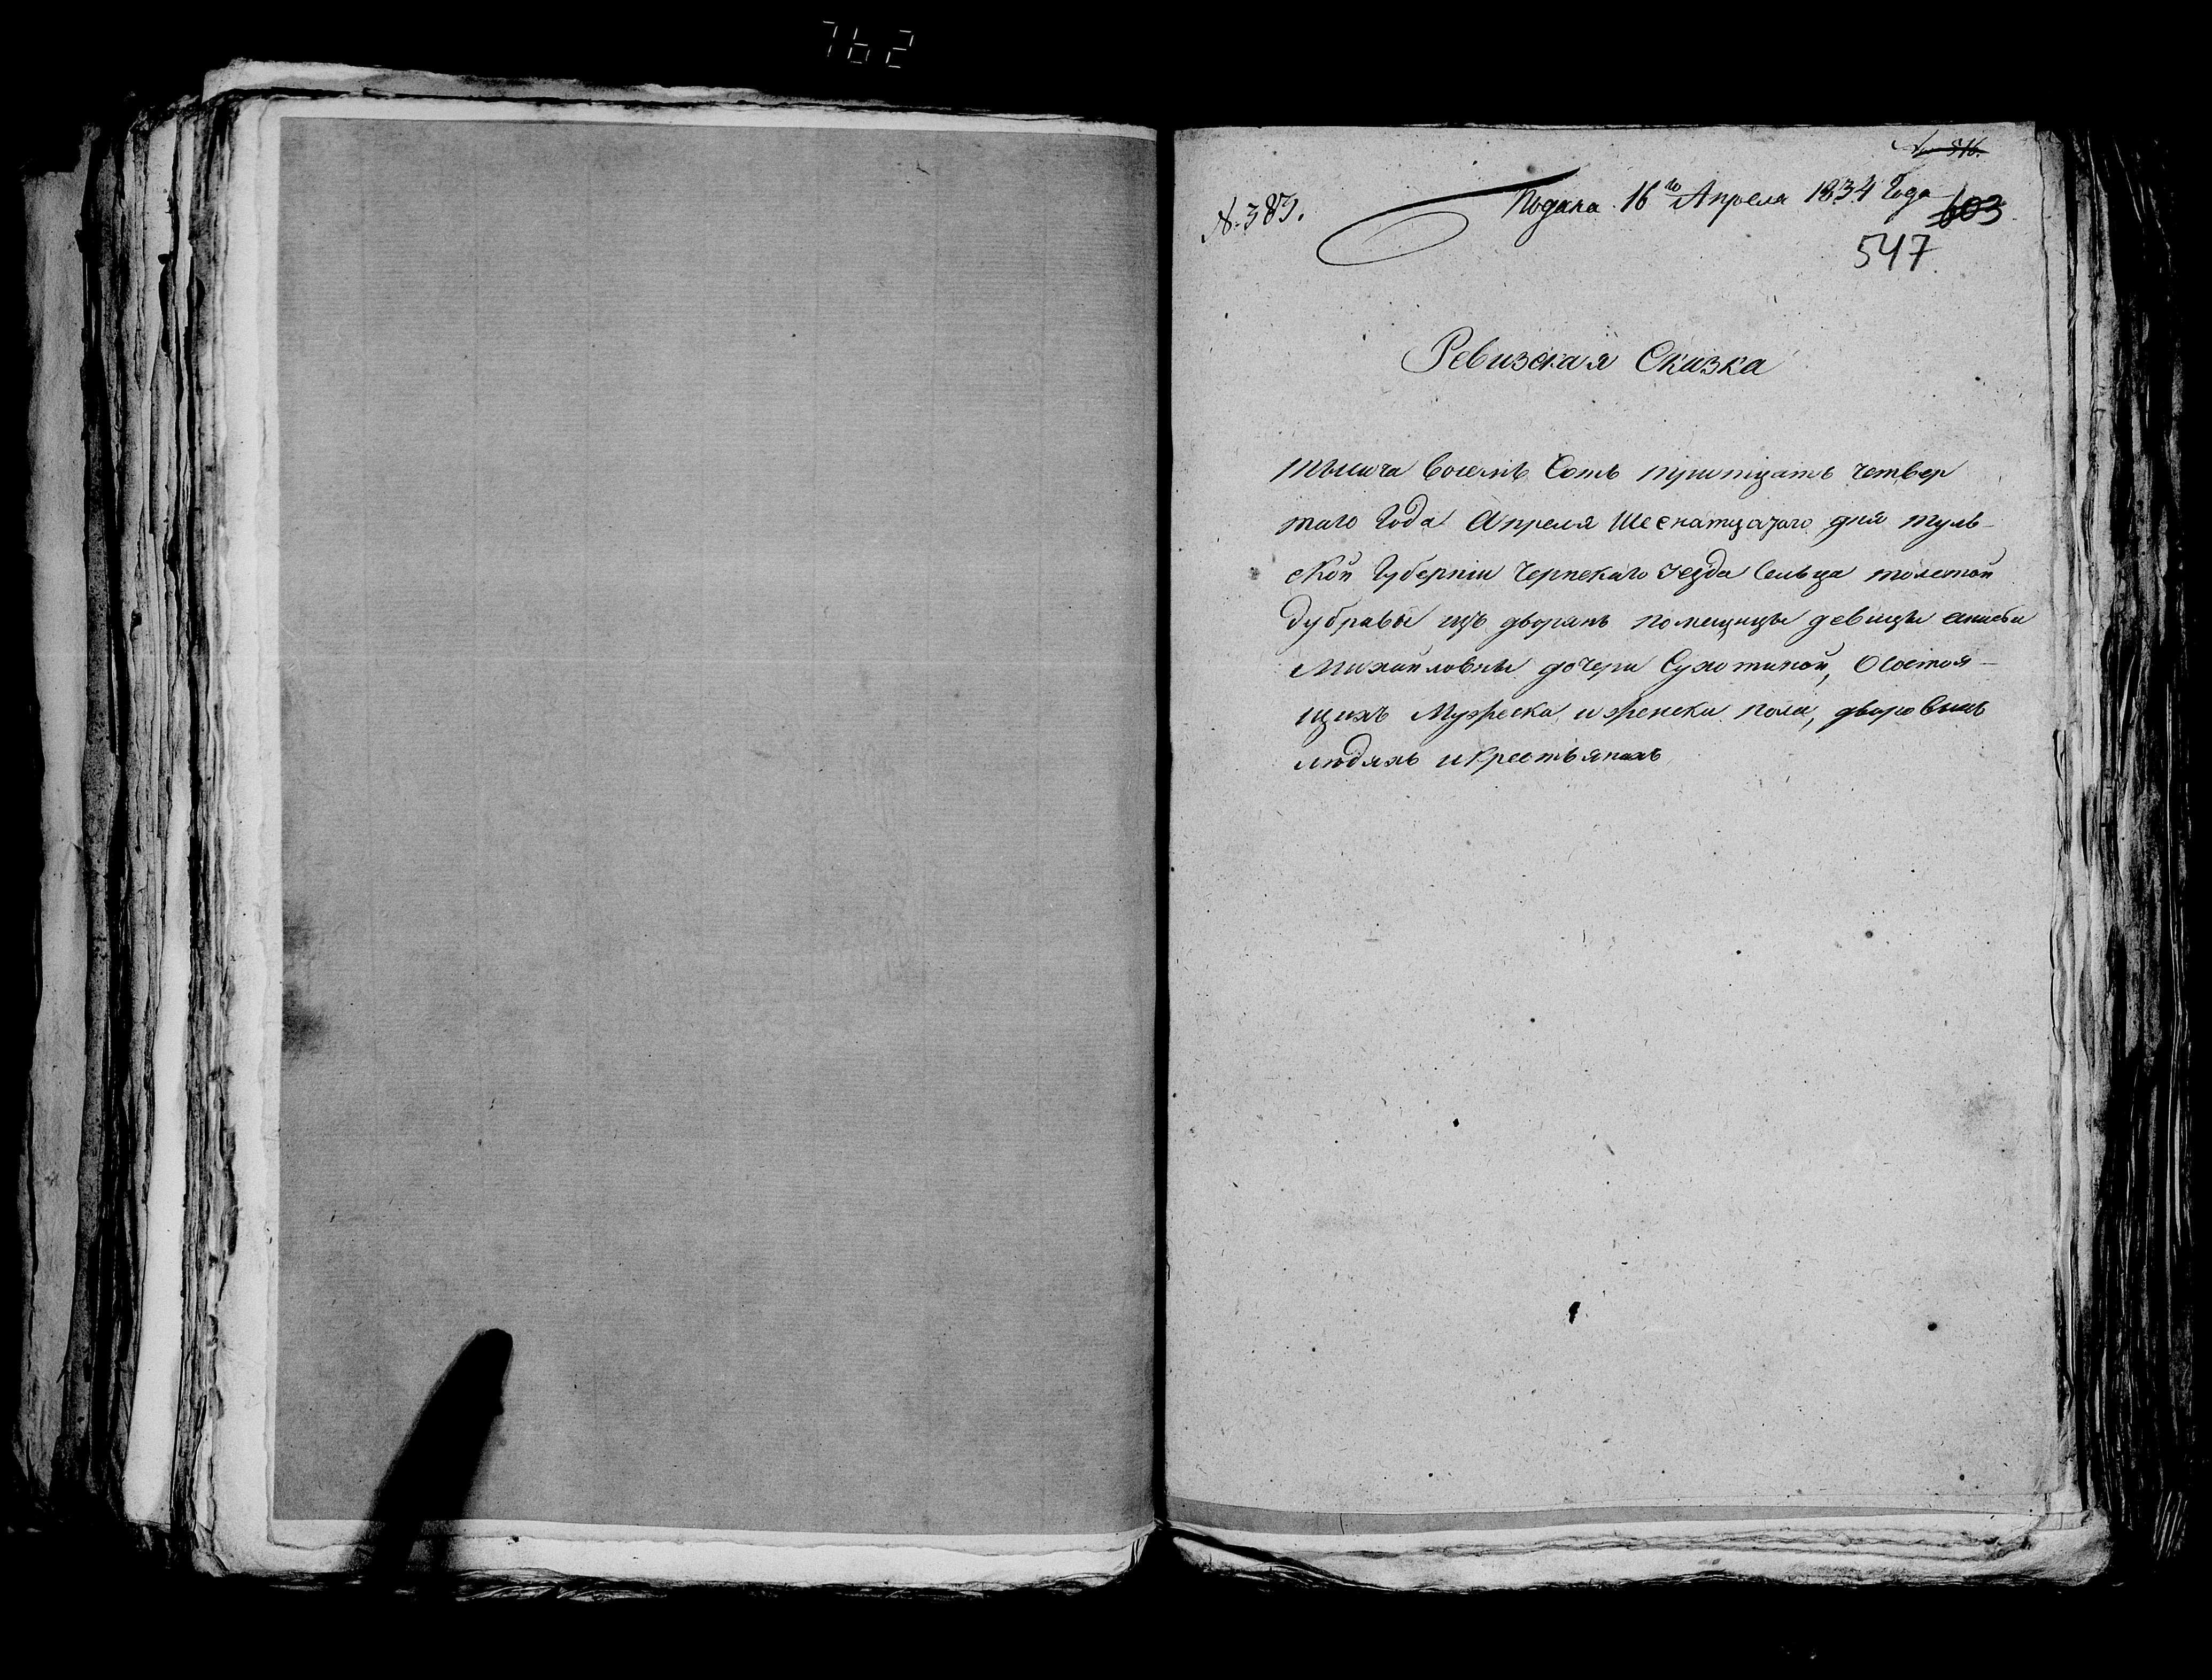 762
№ 516.
№ 383.
Подана 16го Апреля 1834 Года
603
547
Ревизская Сказка
тысича восемь Сотъ притцать четвер
таго Года Апреля Шеснатцатаго дня туль-
ской Губерніи Чернскаго уезда Сельца толстой
дубравы изъ дворянъ помещицы девицы
Михайловны дочери Сухотиной, О Состоя-
щихъ Мужеска и женска пола, дворовыхъ
людяхъ и крестьянахъ